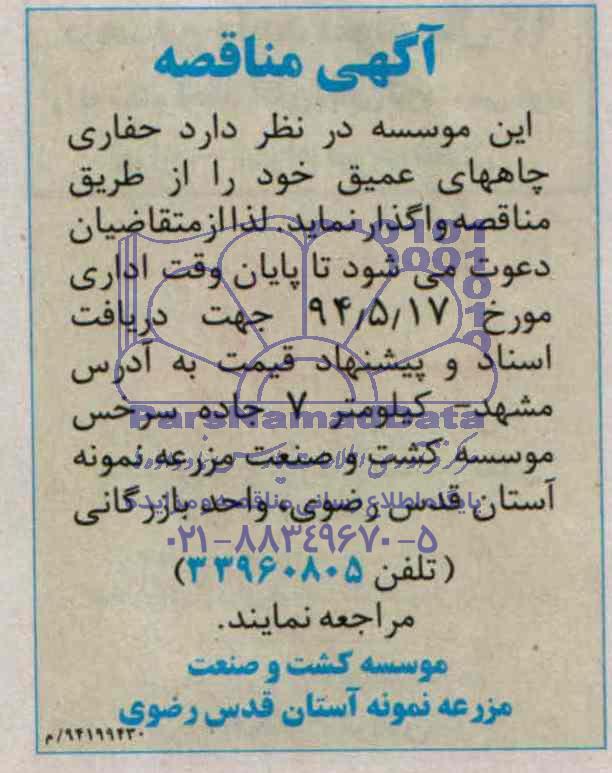 آگهی مناقصه
این موسسه در نظر دارد حفاری
چاههای عمیق خود را از طریق
مناقصه واگذار نماید. لذا از متقاضیان
دعوت می شود تا پایان وقت اداری
مورخ ۹۴/۵/۱۷ جهت دریافت
اسناد و پیشنهاد قیمت به آدرس
مشهد- کیلومتر ۷ جاده سرخس
ParsNamadData
موسسه کشت و صنعت مزرعه نمونه
آستان قدس رضوی، واحد بازرگانی
۰۲۱-۸۸۳۴۹۶۷۰-۵
(تلفن ۳۳۹۶۰۸۰۵)
مراجعه نمایند.
موسسه کشت و صنعت
مزرعه نمونه آستان قدس رضوی
۹۴۱۹۹۴۳۰/م